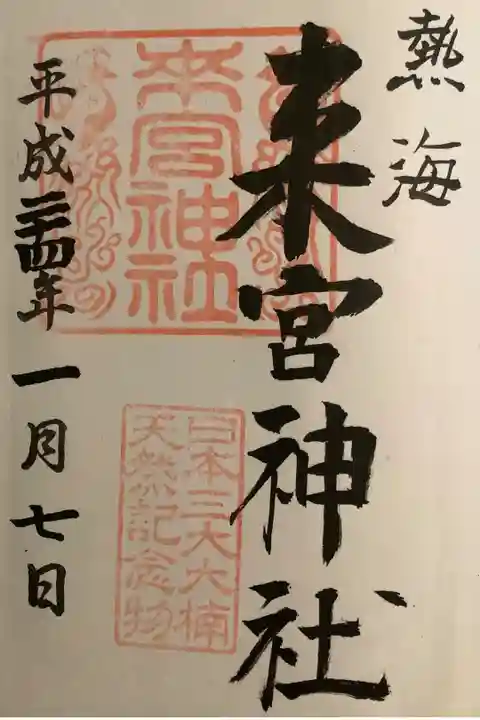 熱海
來宮神社
來宮神社
日本三大大楠
天然記念物
平成二十四年一月七日